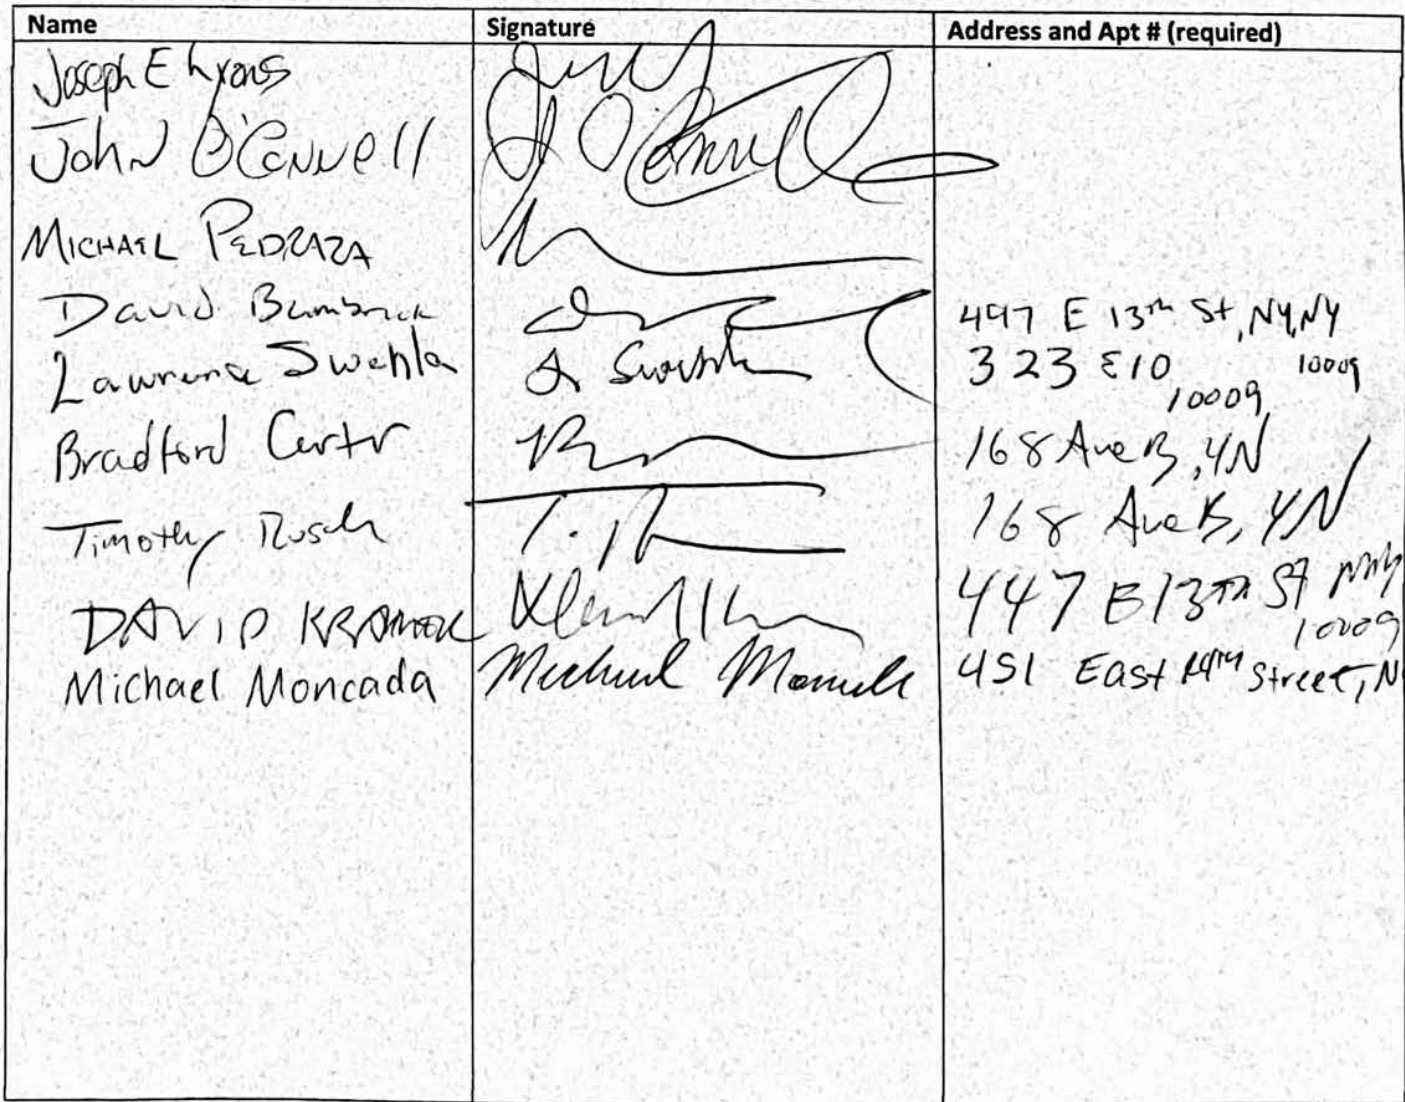 Name Signature Address and Apt # (required)
Joseph E Lyons
John O'Connell J O'Connell
MICHAEL PEDRAZA
David 497 E 13th St, NY, NY
10009
Lawrence Swehla 323 E10
10009
Bradford Carter 168 Ave B, YN
Timothy 168 Ave B, YN
DAVID KRAMER 447 E 13TH St NNY
10009
Michael Moncada Michael 451 East 14TH Street, N